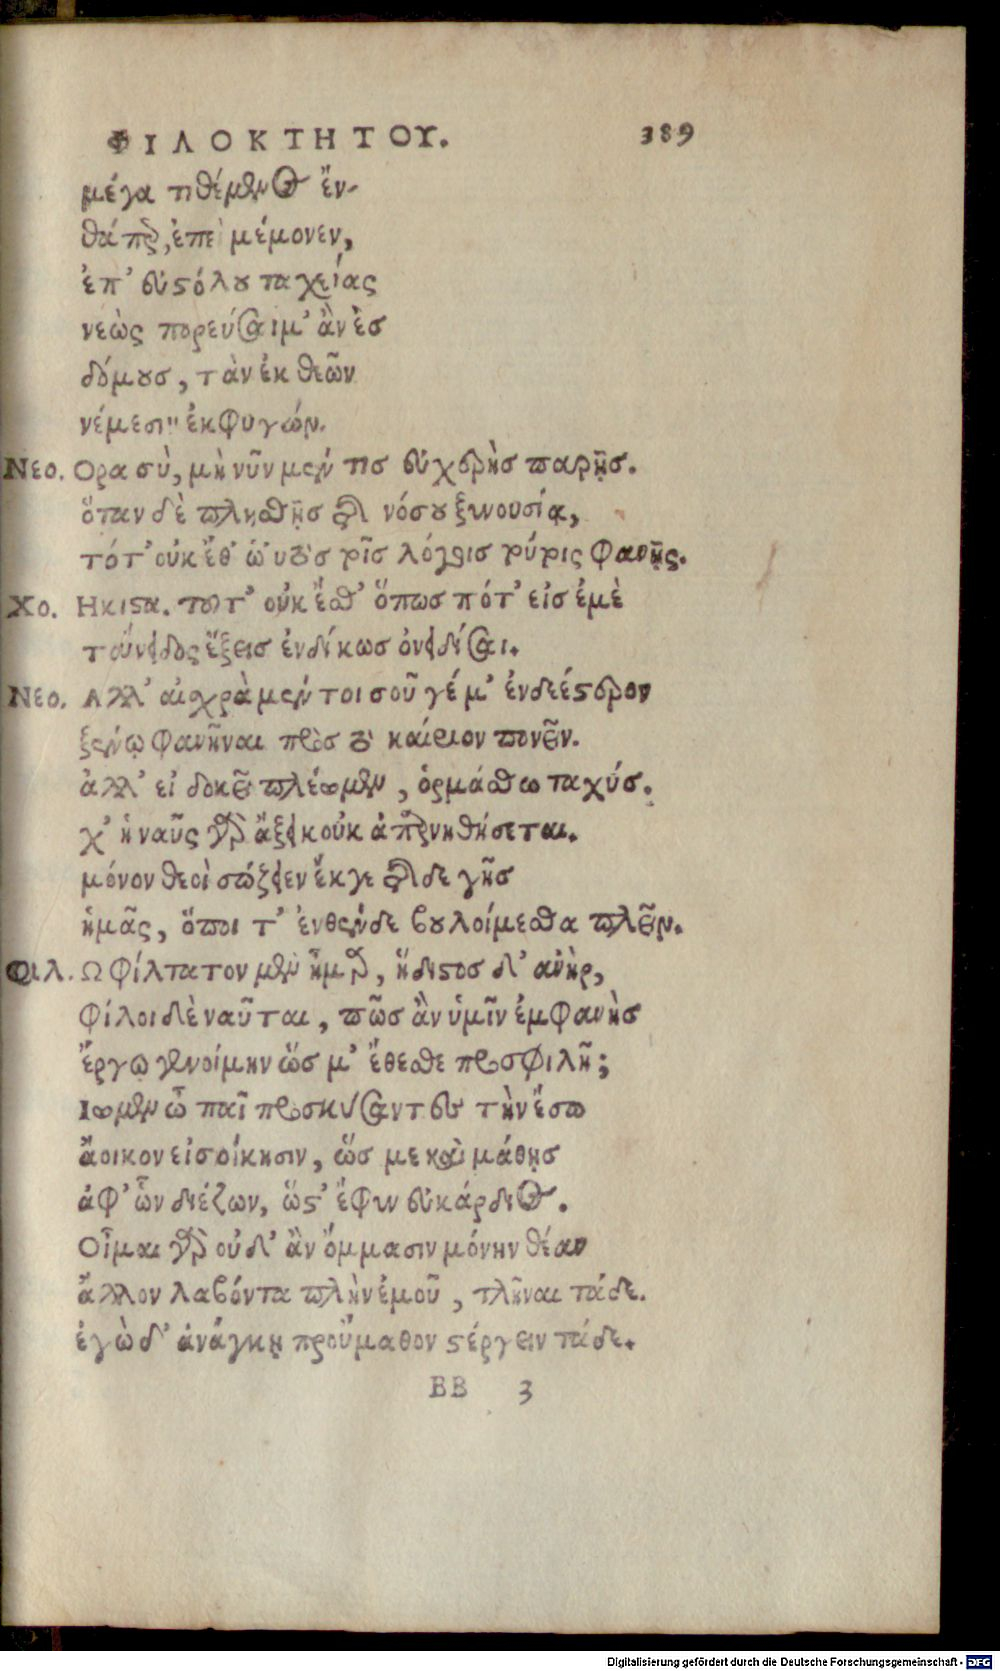 ΦΙΛΟΚΤΗΤΟΥ. 389
μέγα τιθέμενος ἔν-
θάπερ, ἐπεὶ μέμονεν,
ἐπ' εὐστόλου ταχείας
νεὼς πορεύσαιμ' ἂν ἐσ
δόμους, τὰν ἐκ θεῶν
νέμεσιν ἐκφυγών.
Νεο. Ορα σὺ, μὴ νῦν μέν τις εὐχερὴς παρῇς.
ὅταν δὲ πλησθῇς τῆς νόσου ξυνουσίᾳ,
τότ' οὐκ ἔθ' ὡυτὸς τοῖς λόγοις τούτοις φανῇς.
Χο. Ηκιστα. τοῦτ' οὐκ ἔσθ' ὅπως πότ' εἰς ἐμὲ
τοὔνειδος ἕξεις ἐνδίκως ὀνειδίσαι.
Νεο. Αλλ' αἰσχρὰ μέν τοι σοῦ γέ μ' ἐνδεέστερον
ξένῳ φανῆναι πρὸς τὸ καίριον πονεῖν.
ἀλλ' εἰ δοκεῖ πλέωμεν, ὁρμάσθω ταχύς.
χ' ἡ ναῦς γὰρ ἄξει κοὐκ ἀπαρνηθήσεται.
μόνον θεοὶ σώζοιεν ἔκ γε τῆςδε γῆς
ἡμᾶς, ὅποι τ' ἐνθένδε βουλοίμεσθα πλεῖν.
Φιλ. Ω φίλτατον μὲν ἦμαρ, ἥδιστος δ' ἀνὴρ,
φίλοι δὲ ναῦται, πῶς ἂν ὑμῖν ἐμφανὴς
ἔργῳ γενοίμην ὥς μ' ἔθεσθε προσφιλῆ;
Ιωμεν ὦ παῖ προσκύσαντες τὴν ἔσω
ἄοικον εἰσοίκησιν, ὥς με καὶ μάθῃς
ἀφ' ὧν διέζων, ὥς τ' ἔφυν εὐκάρδιος.
Οἶμαι γὰρ οὐδ' ἂν ὄμμασιν μόνην θέαν
ἄλλον λαβόντα πλὴν ἐμοῦ, τλῆναι τάδε.
ἐγὼ δ' ἀνάγκῃ προὔμαθον στέργειν τάδε.
BB 3
Digitalisierung gefördert durch die Deutsche Forschungsgemeinschaft - DFG